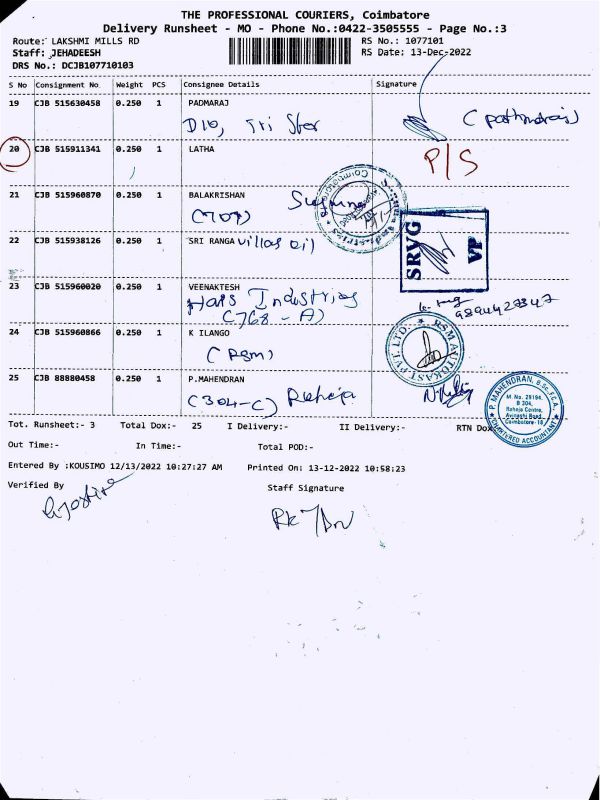 THE PROFESSIONAL COURIERS, Coimbatore
Delivery Runsheet - MO - Phone No.:0422-3505555 - Page No.:3
Route: LAKSHMI MILLS RD
RS No.: 1077101
Staff: JEHADEESH
RS Date: 13-Dec-2022
DRS No.: DCJB107710103
S No Consignment No. Weight PCS Consignee Details Signature
19 CJB 515630458 0.250 1 PADMARAJ
D10, Tri Star
20 CJB 515911341 0.250 1 LATHA
P/S
21 CJB 515960870 0.250 1 BALAKRISHAN
(707) Suguna
22 CJB 515938126 0.250 1 SRI RANGA villas oil
SRVG
VP
23 CJB 515960020 0.250 1 VEENAKTESH
Industries
(768-A)
24 CJB 515960866 0.250 1 K ILANGO
(RSM)
RSM AUTOKAST PVT. LTD.
25 CJB 88880458 0.250 1 P.MAHENDRAN
(304-C) Raheja
P. MAHENDRAN, B.Sc., F.C.A.
M. No. 29194,
Raheja Centre,
Avinashi Road,
Coimbatore - 18
CHARTERED ACCOUNTANT
Tot. Runsheet:- 3 Total Dox:- 25 I Delivery:- II Delivery:- RTN Dox
Out Time:- In Time:- Total POD:-
Entered By :KOUSIMO 12/13/2022 10:27:27 AM Printed On: 13-12-2022 10:58:23
Verified By
Staff Signature